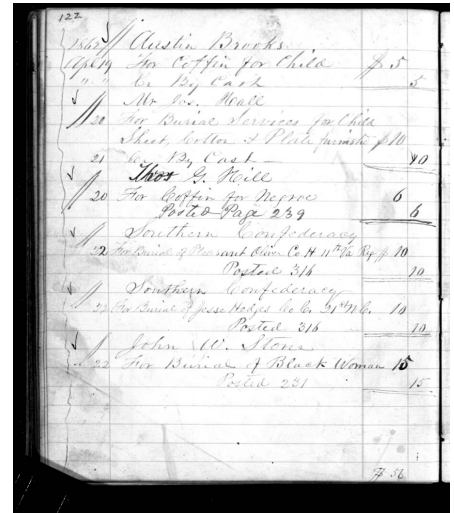 122
1862 Austin Brooks
Apl 19 For Coffin for Child $ 5
" Cr By Cash 5
Mr Jos. Hall
20 For Burial Services for Child
Sheet, Cotton & Plate furnished $10
21 Cr By Cash 10
Thos G. Hill
20 For Coffin for Negroe 6
Posted Page 239 6
Southern Confederacy
22 For Burial of Pleasant Oliver Co H 11th Va Reg $ 10
Posted 316 10
Southern Confederacy
22 For Burial of Jesse Hodges Co 21st N.C. 10
Posted 316 10
John W. Stone
22 For Burial of Black Woman 15
Posted 231 15
$ 56